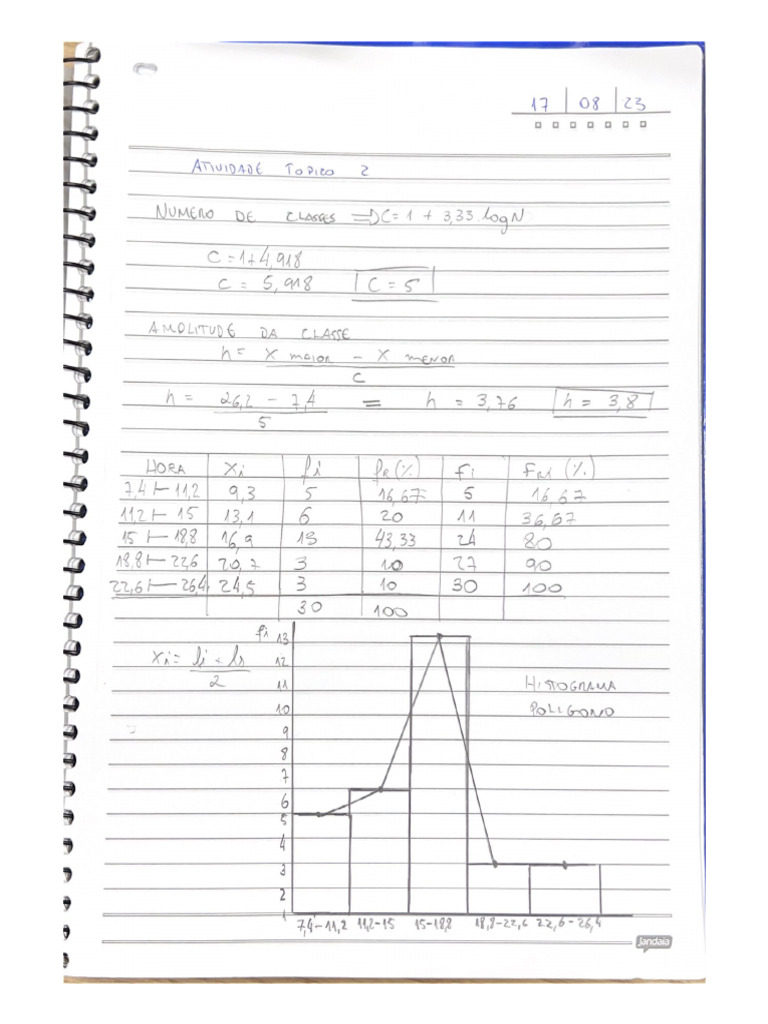 17 | 08 | 23
ATIVIDADE TOPICO 2
NUMERO DE CLASSES => C = 1 + 3,33.logN
C = 1+4,918
C = 5,918 C = 5
AMPLITUDE DA CLASSE
h = X MAIOR - X MENOR
C
h = 26,2 - 7,4 = h = 3,76 h = 3,8
5
HORA Xi fi fR(%) Fi FRi (%)
7,4 ⊢ 11,2 9,3 5 16,67 5 16,67
11,2 ⊢ 15 13,1 6 20 11 36,67
15 ⊢ 18,8 16,9 13 43,33 24 80
18,8 ⊢ 22,6 20,7 3 10 27 90
22,6 ⊢ 26,4 24,5 3 10 30 100
30 100
fi
13
Xi = li + ls
2
12
11
HISTOGRAMA
10
POLIGONO
9
8
7
6
5
4
3
2
1
7,4-11,2 11,2-15 15-18,8 18,8-22,6 22,6-26,4
Jandaia